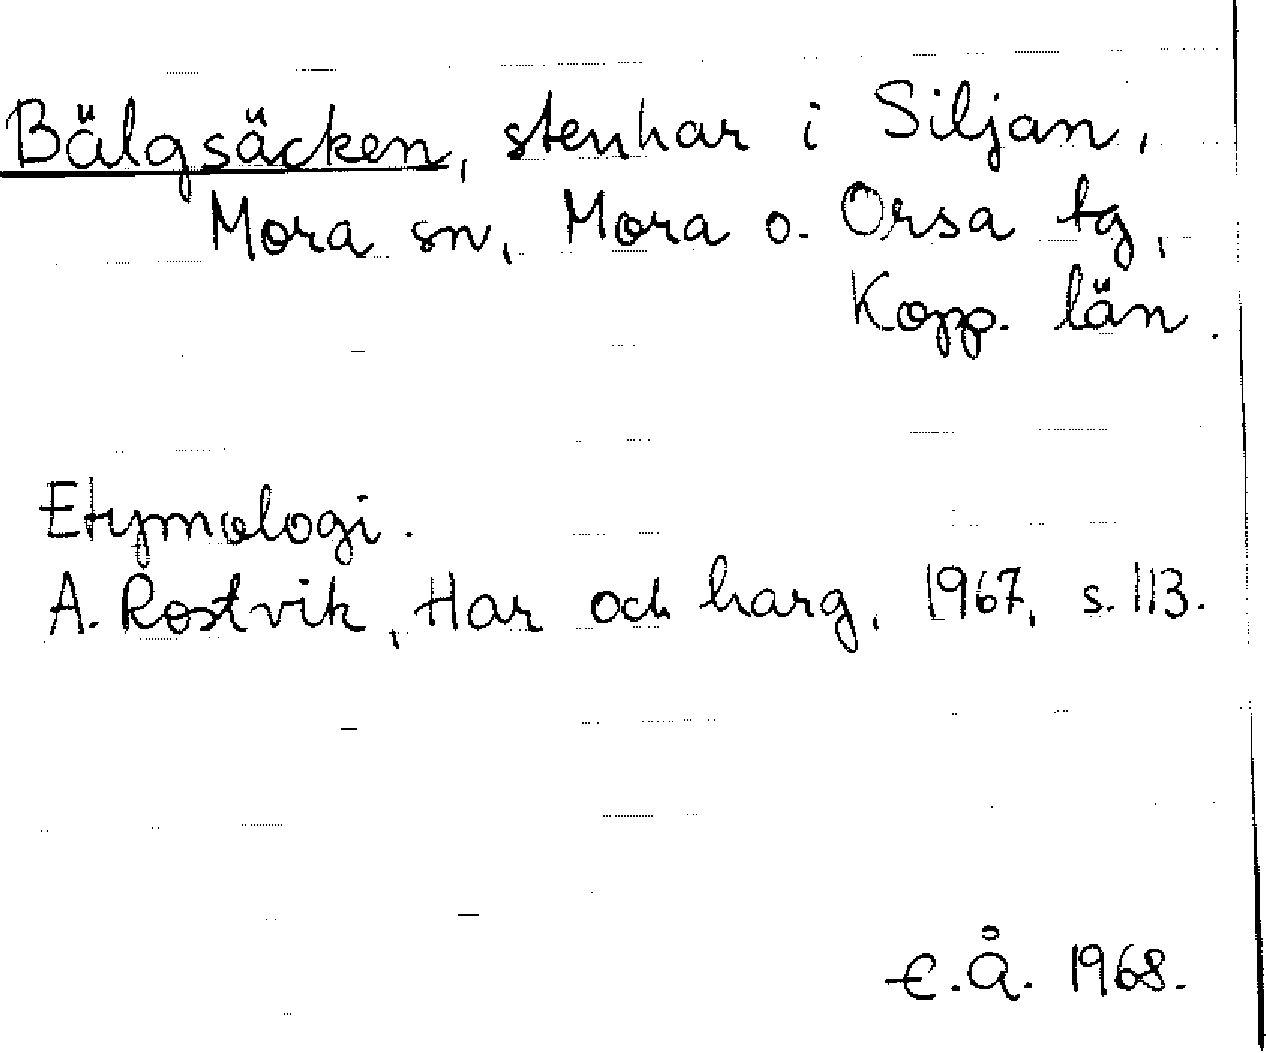 Bälgsäcken, stenhar i Siljan,
Mora sn, Mora o. Orsa tg,
Kopp. län.
Etymologi.
A. Rostvik, Har och harg, 1967, s. 113.
E.Å. 1968.